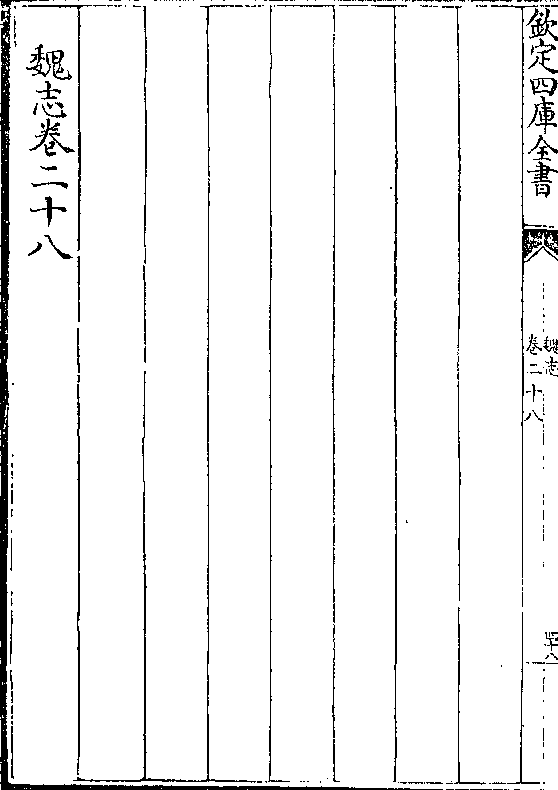 欽定四庫全書
魏志
卷二十八
四十八
魏志卷二十八